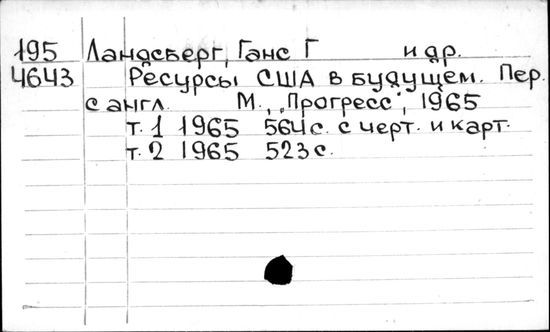 195 Ландсберг, Ганс Г и др.
4643 Ресурсы США в будущем. Пер.
с англ. М., „Прогресс", 1965
т. 1 1965 564 с. с черт. и карт.
т. 2 1965 523 с.